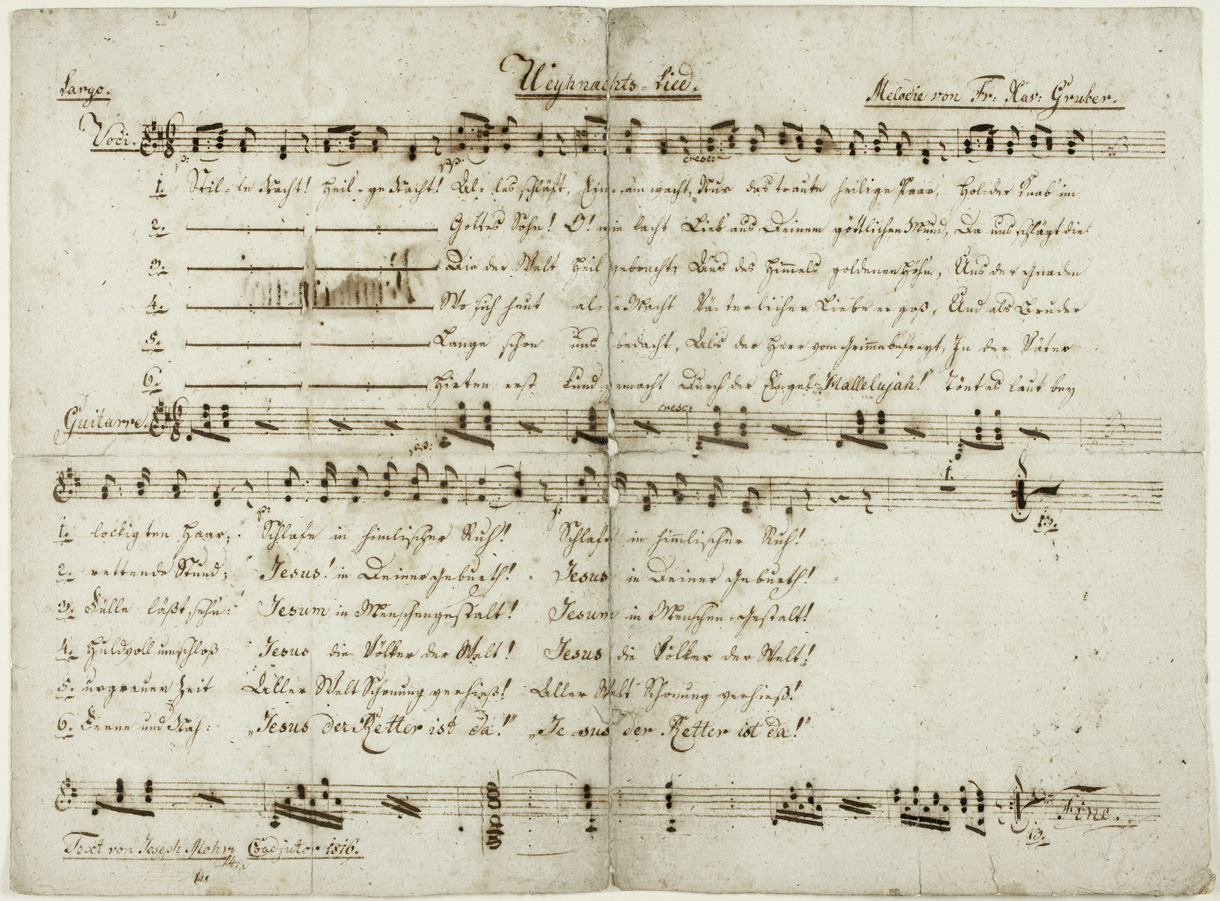 Weyhnachts-Lied.
Largo.
Melodie von Fr: Xav: Gruber.
Voci.
p: pp: cresc:
1. Stil-le Nacht! Heil-ge Nacht! Al-les schläft, Einsam wacht, Nur das traute heilige Paar, Holder Knab im
2. Gottes Sohn! O! wie lacht Lieb aus Deinem göttlichen Mund, Da uns schlägt die
3. Die der Welt Heil gebracht; Aus des Himmels goldenen Höhn, Aus der Gnaden
4. Wo sich heut alle Macht Väterlicher Liebe ergoß, Und als Bruder
5. Lange schon uns bedacht, Als der Herr vom Grimme befreyt, In der Väter
6. Hirten erst kundgemacht Durch der Engel „Hallelujah!" Tönt es laut bey
cresc:
Guitarre.
pp:
p: p:
1. lockigten Haar; Schlafe in himlischer Ruh! Schlafe in himmlischer Ruh!
2. rettende Stund; Jesus! in Deiner Geburth! Jesus in Deiner Geburth!
3. Fülle läßt sehn: Jesum in Menschengestalt! Jesum in Menschen-Gestalt!
4. Huldvoll umschloß Jesus die Völker der Welt! Jesus die Völker der Welt!
5. urgrauer Zeit Aller Welt Schonung verhieß! Aller Welt Schonung verhieß!
6. Ferne und Nah: „Jesus der Retter ist da!" „Jesus der Retter ist da!"
Fine.
Text von Joseph Mohr Coadjutor 1816.